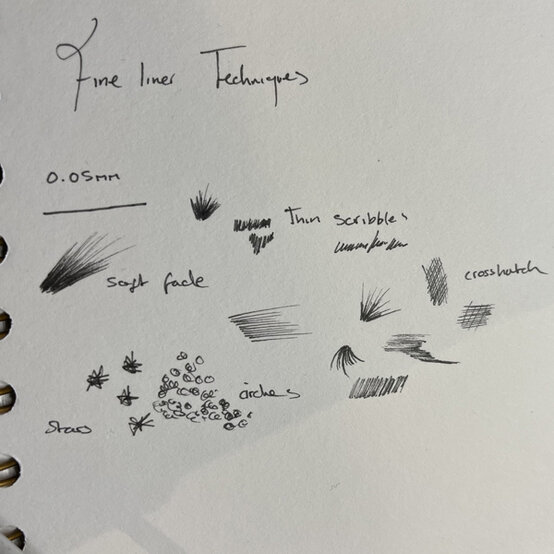 Fine liner Techniques
0.05mm
Thin scribbles
crosshatch
soft fade
circles
Stars